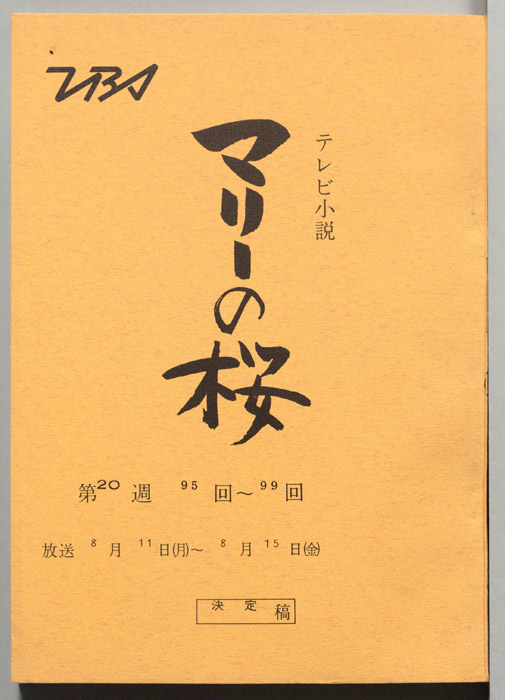 TBS
テレビ小説
マリーの桜
第20週 95回～99回
放送 8月 11日(月)～ 8月 15日(金)
決定稿